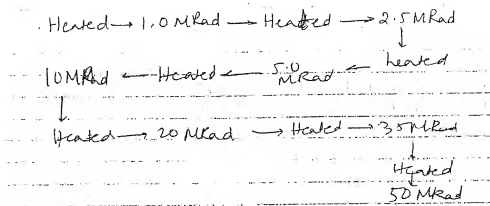 . Heated → 1.0 MRad → Heated → 2.5 MRad
10 MRad ← Heated ← 5.0 MRad ← heated
Heated → 20 MRad → Heated → 35 MRad
Heated
50 MRad